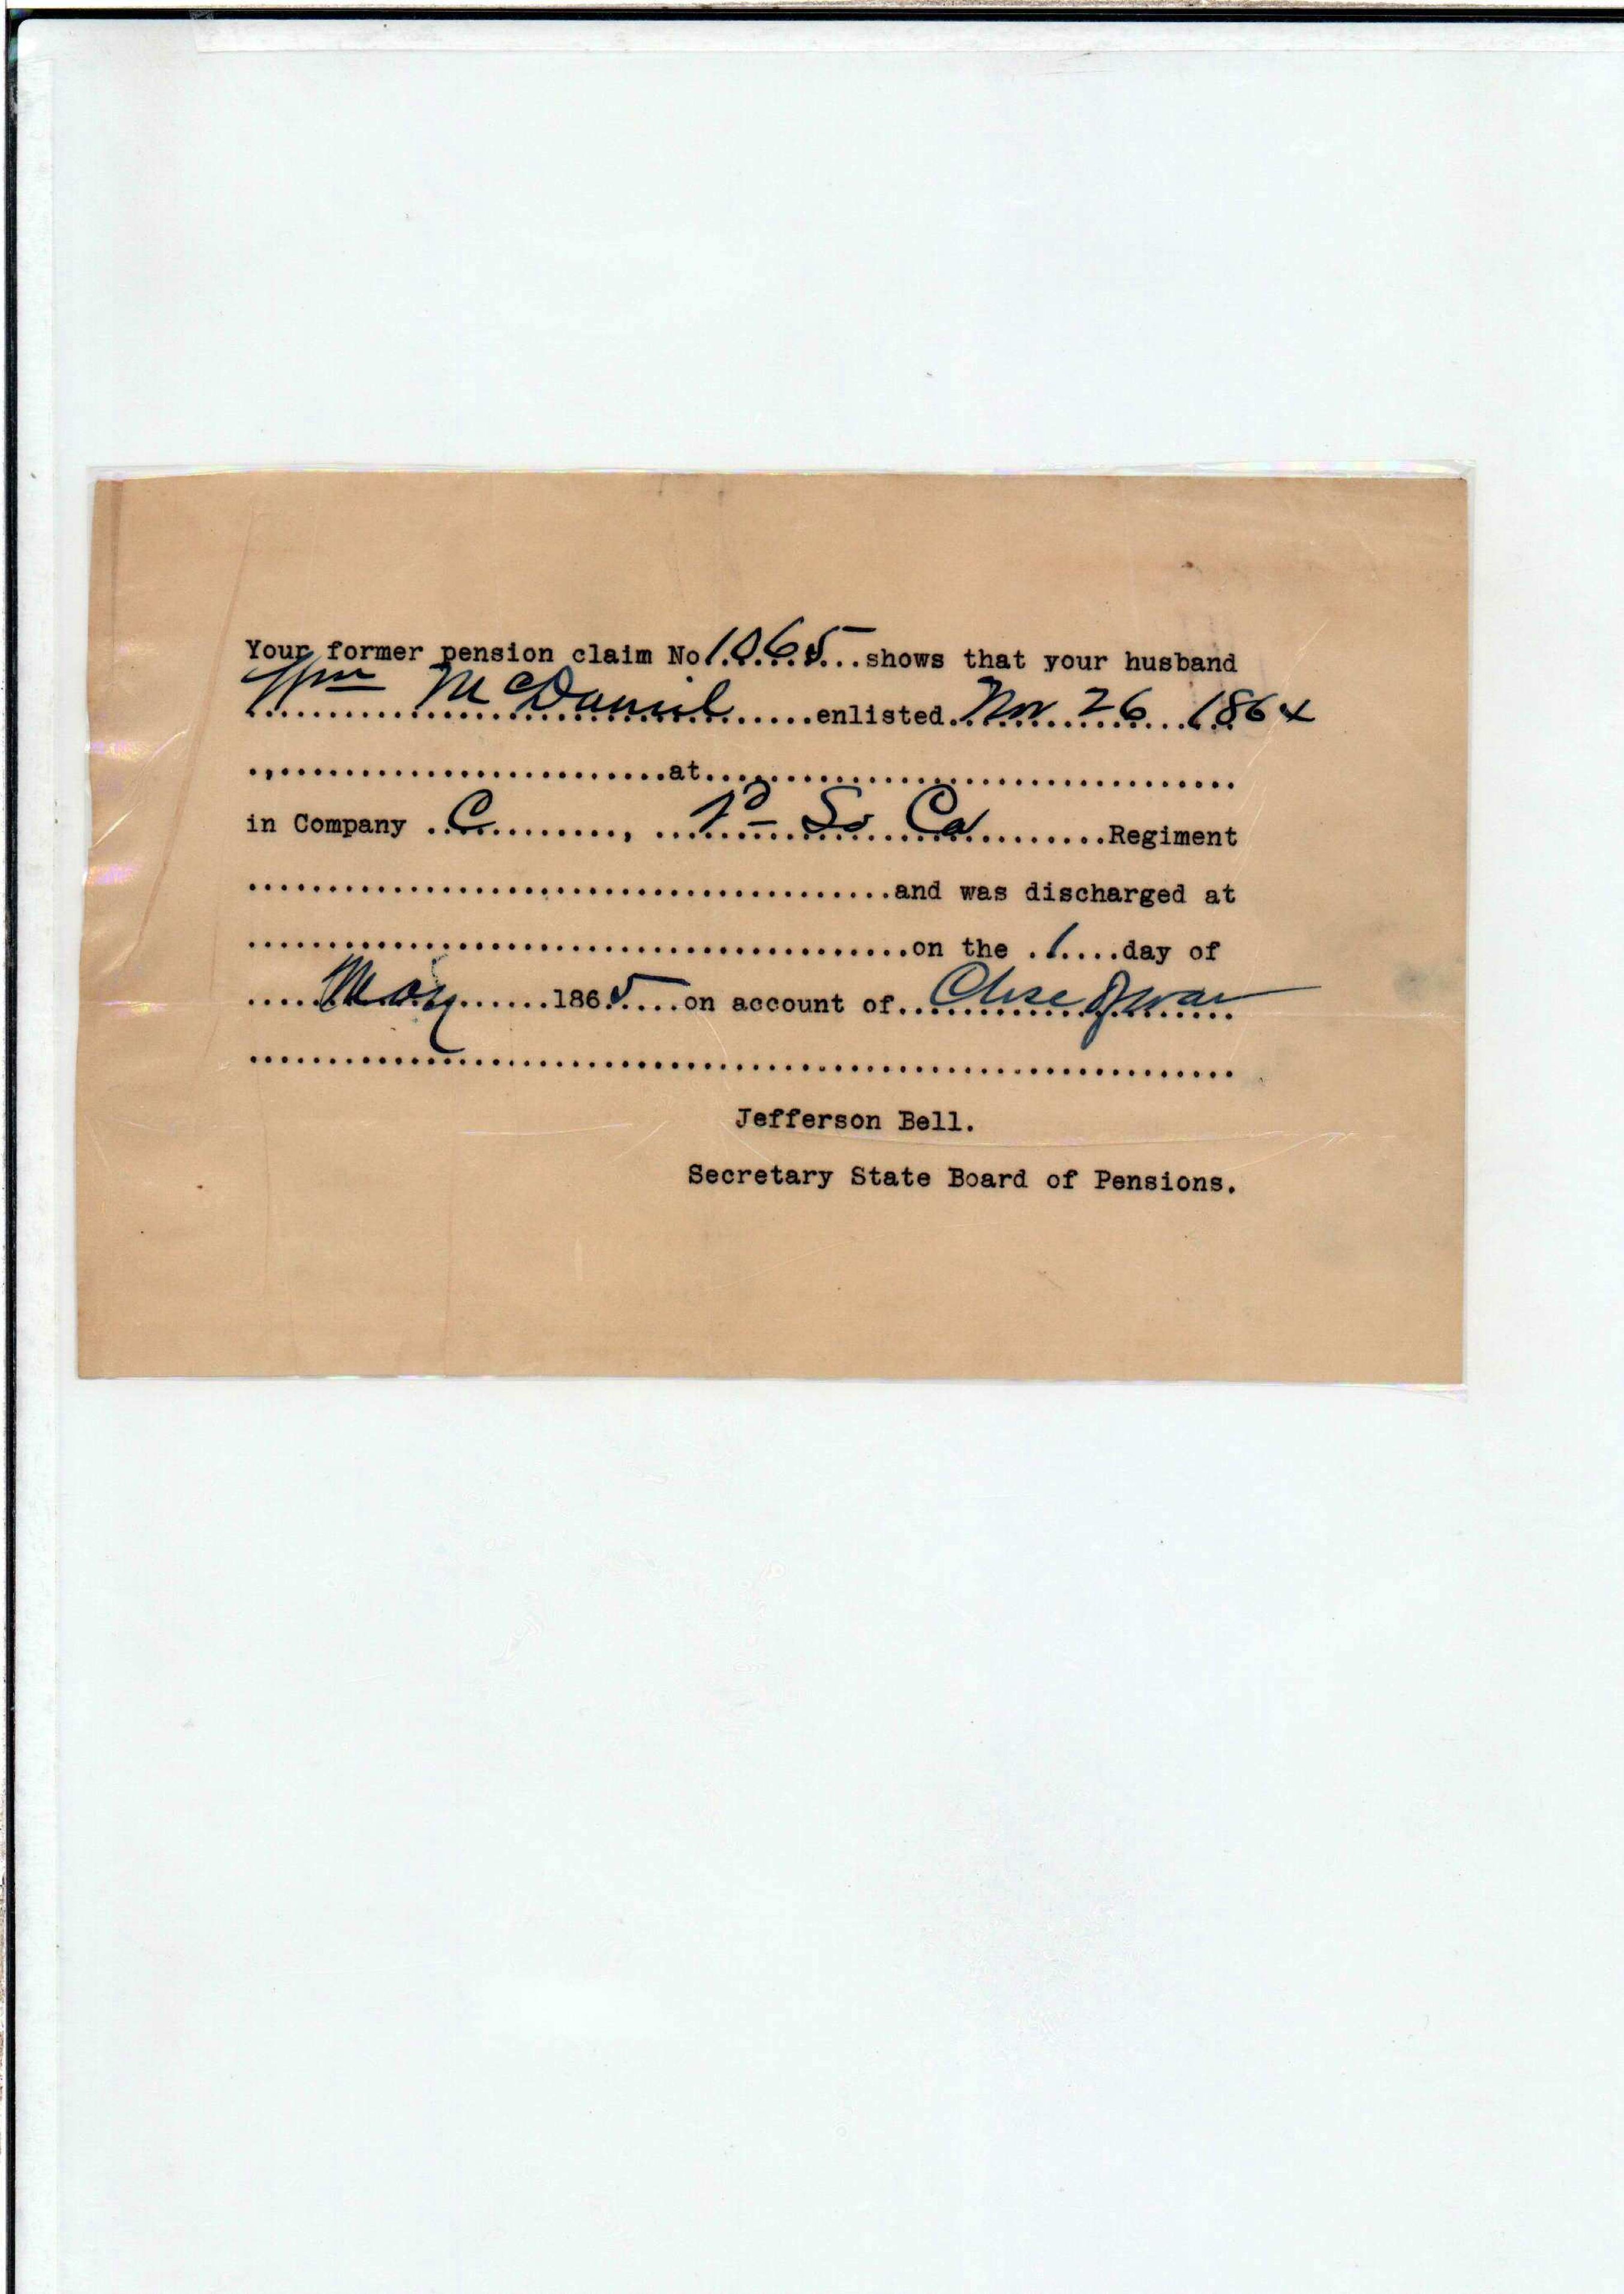 Your former pension claim No 1065 shows that your husband
Wm McDaniel enlisted Nov 26 1864
at
in Company C, So Ca Regiment
and was discharged at
on the 1 day of
May 1865 on account of Close of war
Jefferson Bell.
Secretary State Board of Pensions.